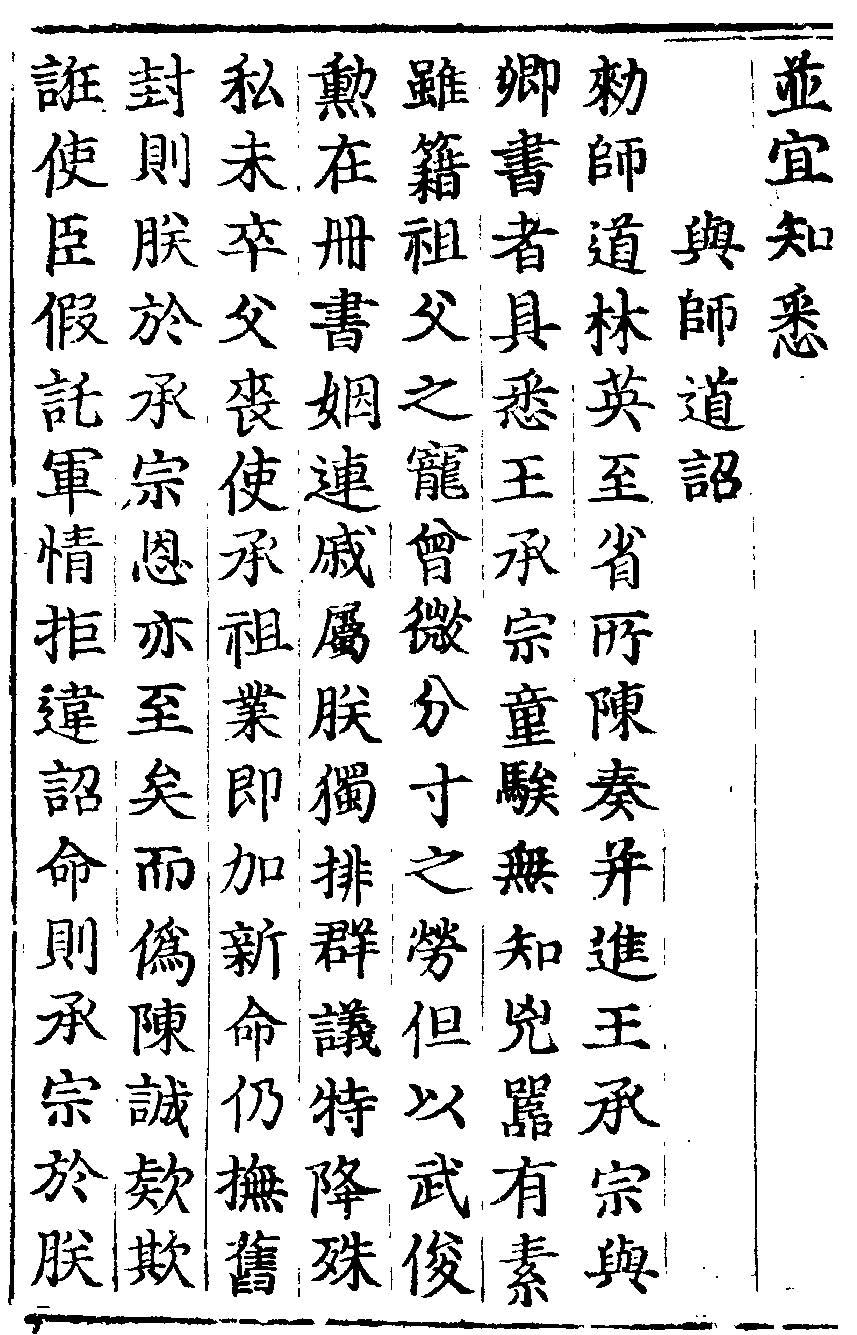 並宜知悉
與師道詔
勑師道林英至省所陳奏并進王承宗與
卿書者具悉王承宗童騃無知兇嚚有素
雖籍祖父之寵曾微分寸之勞但以武俊
勲在冊書姻連戚屬朕獨排群議特降殊
私未卒父喪使承祖業即加新命仍撫舊
封則朕於承宗恩亦至矣而僞陳誠欵欺
誑使臣假託軍情拒違詔命則承宗於朕